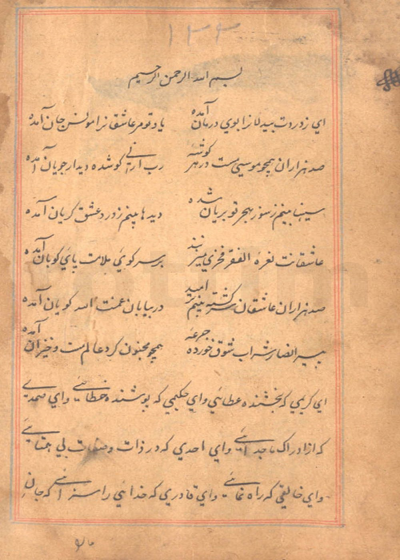 ۱۲۲
بسم الله الرحمن الرحیم
ای ز دردت بیدلانرا بوی درمان آمده یاد تو مر عاشقانرا مونس جان آمده
صد هزاران همچو موسی مست در هر گوشه رب ارنی گو شده دیدار جویان آمده
سینها بینم ز سوز هجر تو بریان شده دیدها بینم ز درد عشق گریان آمده
عاشقانت نعره الفقر فخری میزنند بر سر کوی ملامت پای کوبان آمده
صد هزاران عاشقان سرگشته بینم امید در بیابان غمت الله گویان آمده
پیر انصار شراب شوق خورده جرعه همچو مجنون گرد عالم مست و خیزان آمده
ای کریمی که بخشنده عطائی وای حکیمی که پوشنده خطائی وای صمدی
که از ادراک ما جدائی وای احدی که در ذات و صفات بی همتائی
وای خالقی که راه نمائی وای قادری که خدائی را سزائی که جان